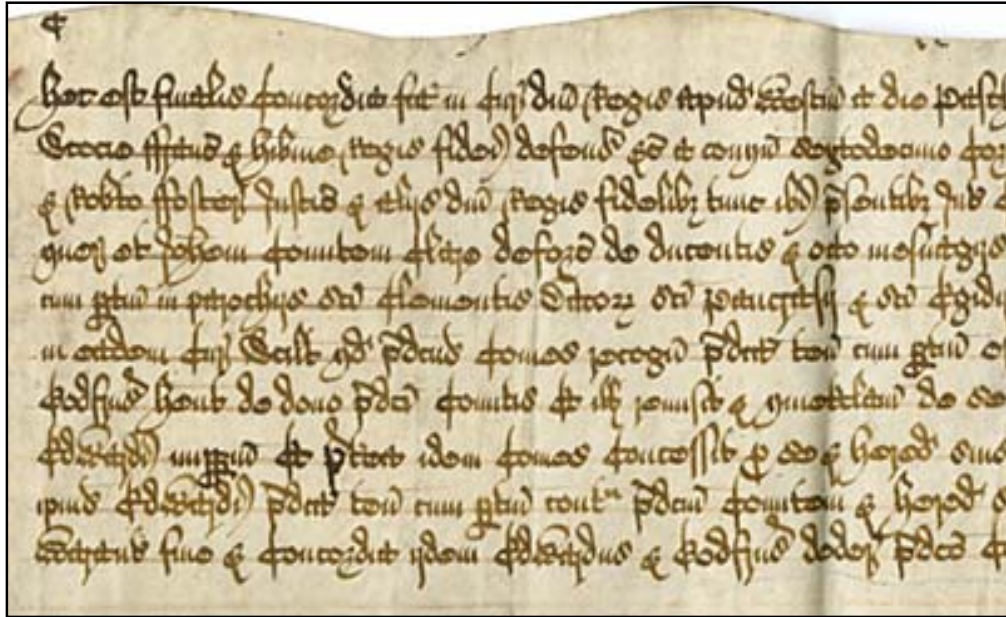 Hec est finalis Concordia fca in Cur dni Regis apud Westm a die Pasch
Scocie ffranc & Hibnie Regis fidei defens &c a conqu sextodecimo Cor
& Robto ffoster Justic & aliis dni Regis fidelibz tunc ibi psentibz Int
quer et Johem Comitem Clare deforc de ducentis & octo mesuagiis
cum ptin in parochiis sci Clementis Dacorz sci Pancratii & sci Egid
in eadem Cur Scilt qd pdcus Comes recogn pdca ten cum ptin
Godfrus hent de dono pdci Comitis Et ill remisit & quietclam de se
Edwardi imppm Et ptea idem Comes concessit p se & hered suis
ipius Edwardi pdca ten cum ptin cont pdcm Comitem & hered
Warant fine & Concordia iidem Edwardus & Godfrus deder pdco